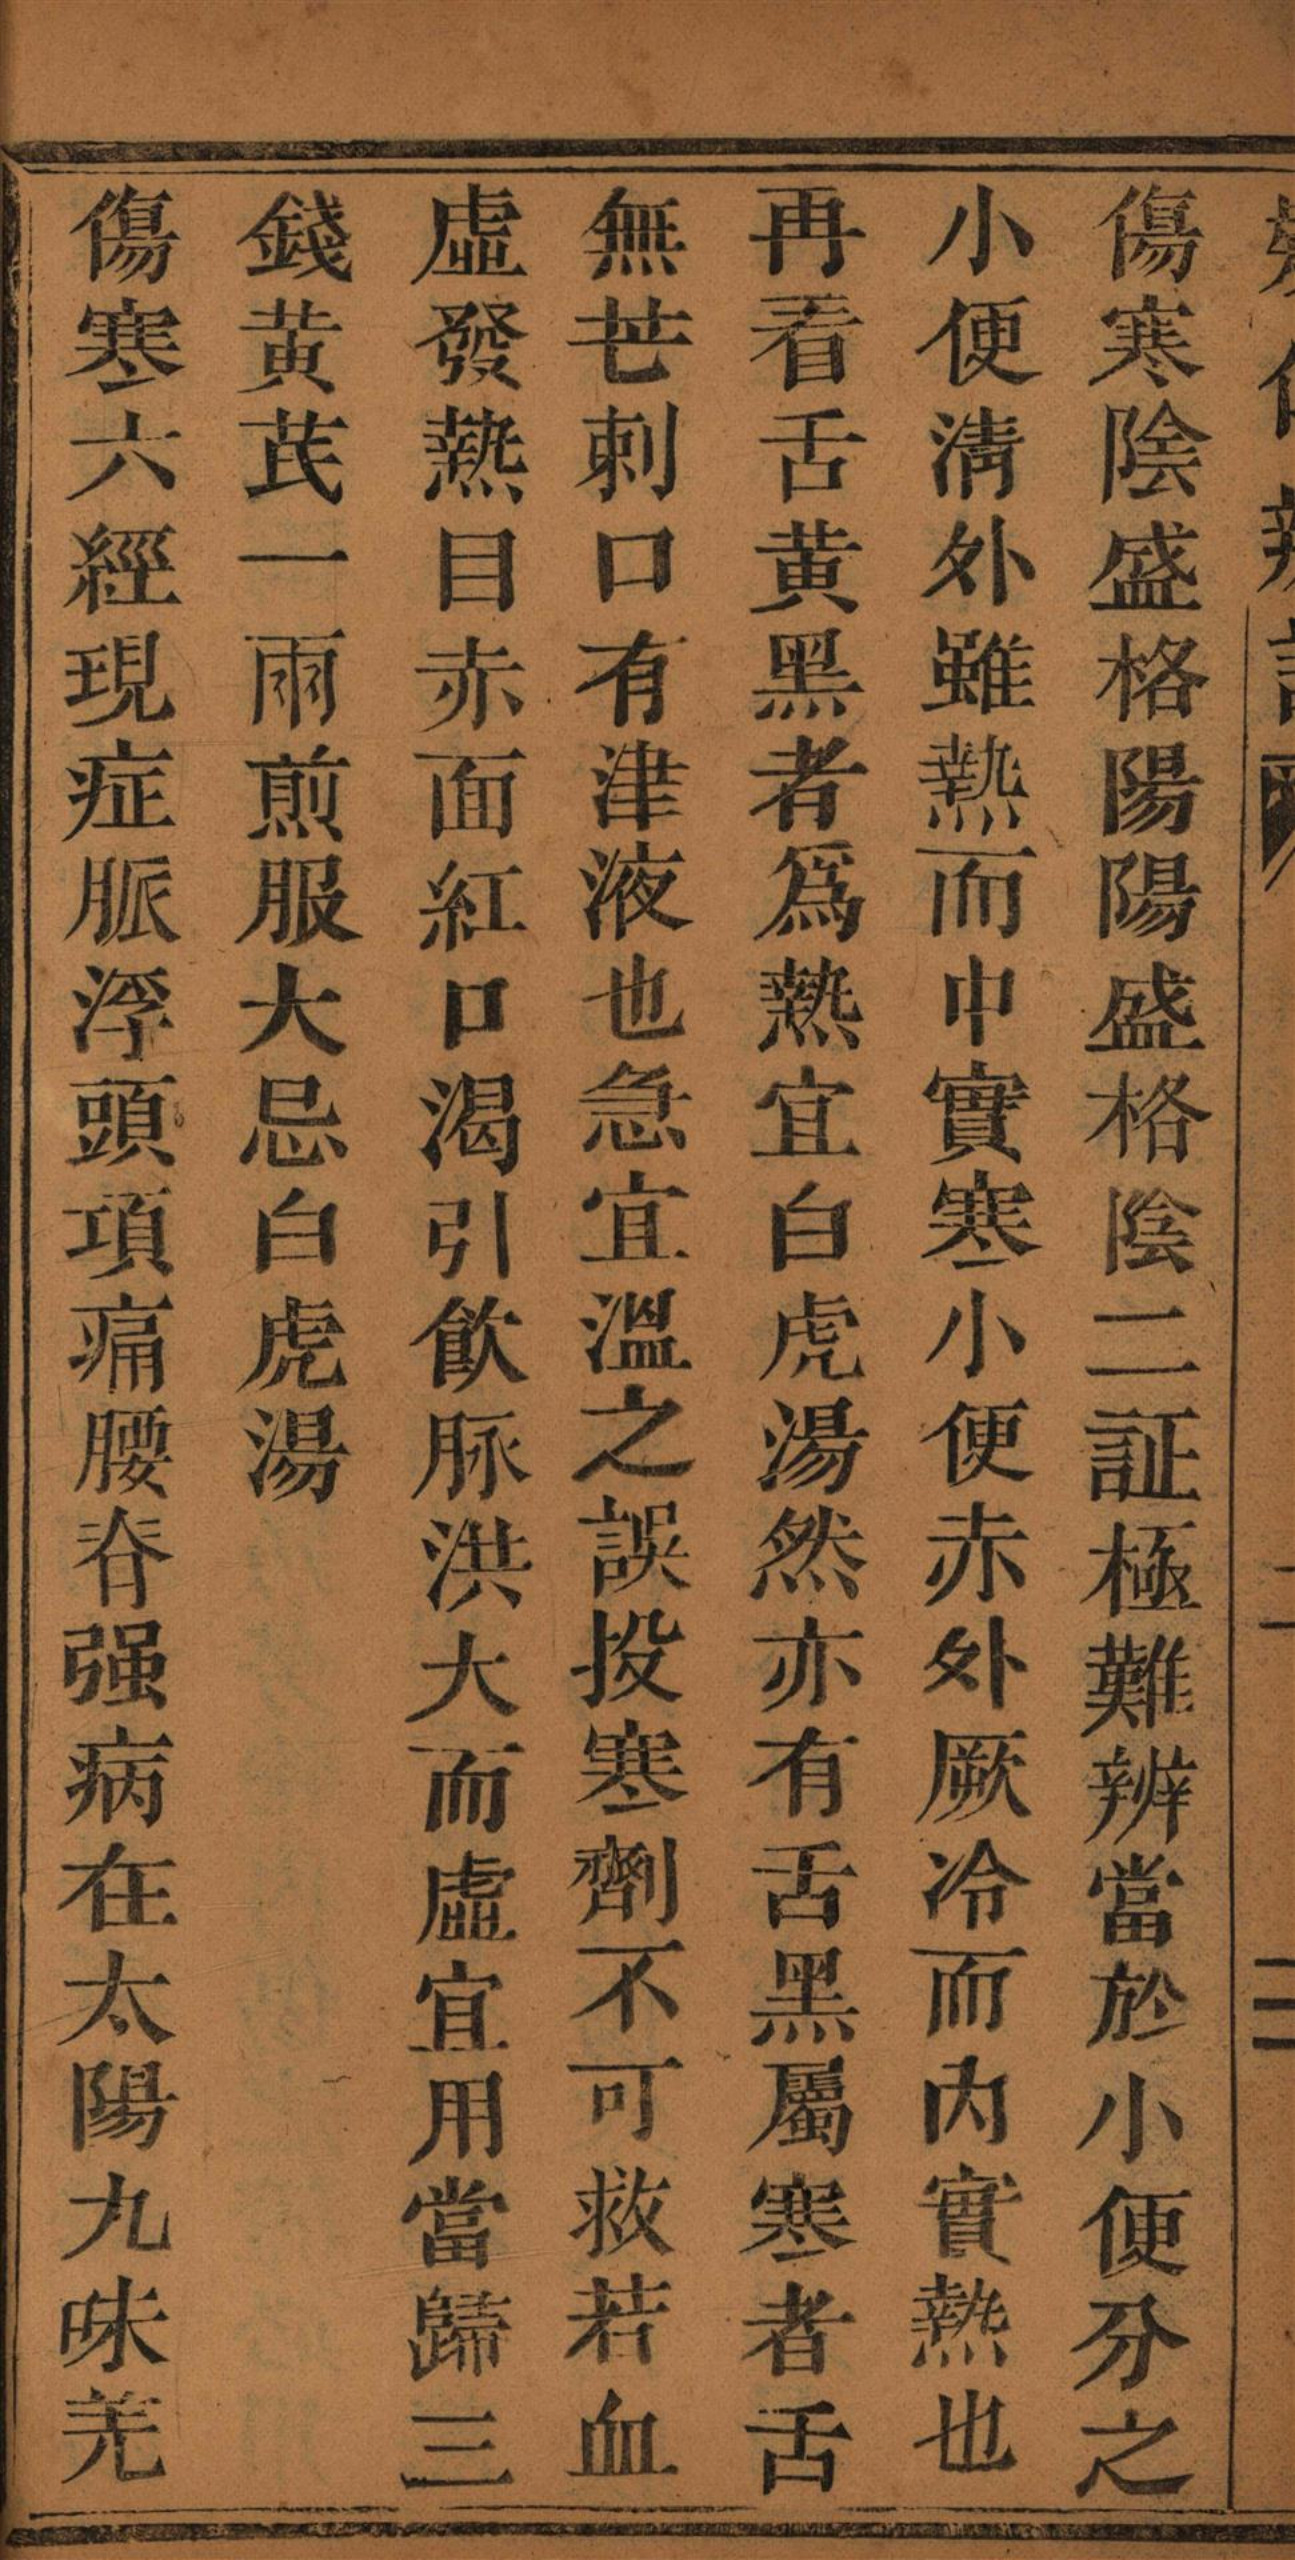 傷寒陰盛格陽陽盛格陰二証極難辨當於小便分之
小便清外雖熱而中實寒小便赤外厥冷而內實熱也
再看舌黃黑者爲熱宜白虎湯然亦有舌黑屬寒者舌
無芒刺口有津液也急宜溫之誤投寒劑不可救若血
虛發熱目赤面紅口渴引飲脉洪大而虛宜用當歸三
錢黃芪一兩煎服大忌白虎湯
傷寒六經現症脈浮頭項痛腰脊强病在太陽九味羌